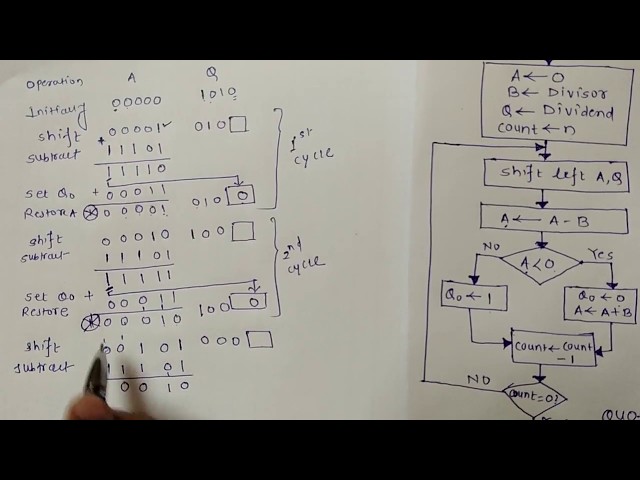 Operation A Q
Initially 00000 1010
shift 00001 010
subtract + 11101
11110
set Q0 + 00011
Restore A 00001 010 0
1st cycle
shift 00010 100
subtract 11101
11111
set Q0 + 00011
Restore 00010 100 0
2nd cycle
shift 00101 000
subtract 11101
00010
A ← 0
B ← Divisor
Q ← Dividend
count ← n
shift left A,Q
A ← A - B
A < 0
No
Yes
Q0 ← 1
Q0 ← 0
A ← A + B
count ← count
-1
NO
count=0?
QUO